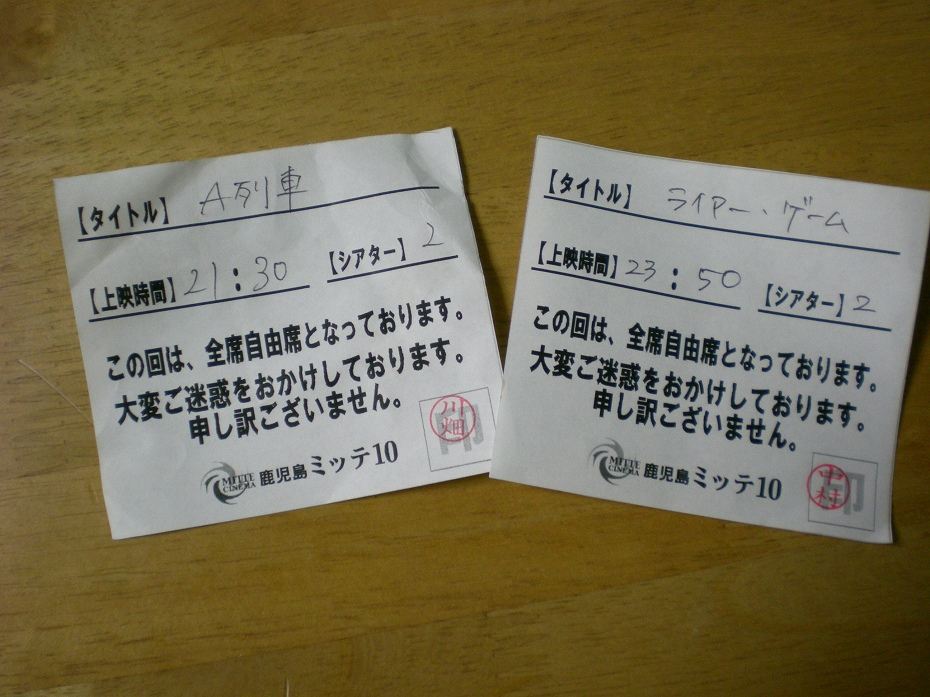 【タイトル】 A列車
【上映時間】 21:30 【シアター】 2
この回は、全席自由席となっております。
大変ご迷惑をおかけしております。
申し訳ございません。
MITTE CINEMA 鹿児島ミッテ10
印
川畑
【タイトル】 ライアー・ゲーム
【上映時間】 23:50 【シアター】 2
この回は、全席自由席となっております。
大変ご迷惑をおかけしております。
申し訳ございません。
MITTE CINEMA 鹿児島ミッテ10
印
中村